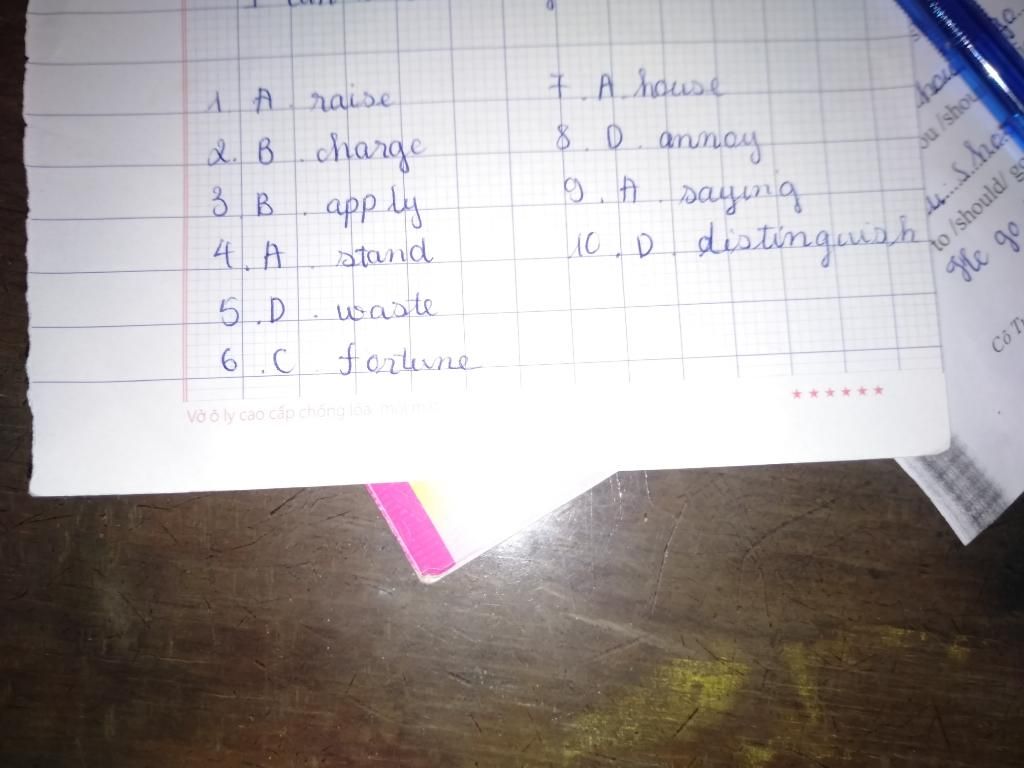 1. A. raise
2. B. charge
3 B. apply
4. A. stand
5. D. waste
6. C fortune
7. A. house
8. D. annoy
9. A. saying
10. D. distinguish
Vở ô ly cao cấp chống lóa
ou /shou
to /should/ g
go
Cô T